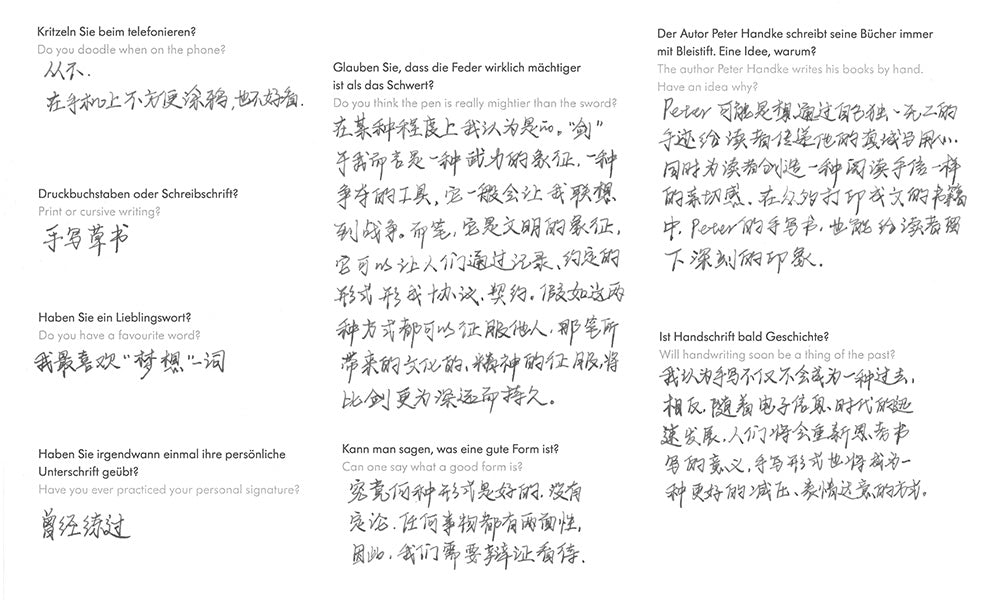 Kritzeln Sie beim telefonieren?
Do you doodle when on the phone?
从不.
在手机上不方便涂鸦,也不好看.
Druckbuchstaben oder Schreibschrift?
Print or cursive writing?
手写草书
Haben Sie ein Lieblingswort?
Do you have a favourite word?
我最喜欢“梦想”一词
Haben Sie irgendwann einmal ihre persönliche
Unterschrift geübt?
Have you ever practiced your personal signature?
曾经练过
Glauben Sie, dass die Feder wirklich mächtiger
ist als das Schwert?
Do you think the pen is really mightier than the sword?
在某种程度上我认为是的。“剑”
于我而言是一种武力的象征,一种
争夺的工具,它一般会让我联想
到战争。而笔,它是文明的象征,
它可以让人们通过记录、约定的
形式形成协议、契约。假如这两
种方式都可以征服他人,那笔所
带来的文化的,精神的征服,将
比剑更为深远而持久。
Kann man sagen, was eine gute Form ist?
Can one say what a good form is?
究竟何种形式是好的,没有
定论.任何事物都有两面性,
因此,我们需要辩证看待.
Der Autor Peter Handke schreibt seine Bücher immer
mit Bleistift. Eine Idee, warum?
The author Peter Handke writes his books by hand.
Have an idea why?
Peter 可能是想通过自己独一无二的
手迹给读者传递他的真诚与用心.
同时为读者创造一种阅读手信一样
的亲切感.在众多打印成文的书籍
中,Peter的手写书,也能给读者留
下深刻的印象.
Ist Handschrift bald Geschichte?
Will handwriting soon be a thing of the past?
我认为手写不仅不会成为一种过去,
相反,随着电子信息时代的迅
速发展,人们将会重新思考书
写的意义,手写形式也将成为一
种更好的减压、表情达意的方式。